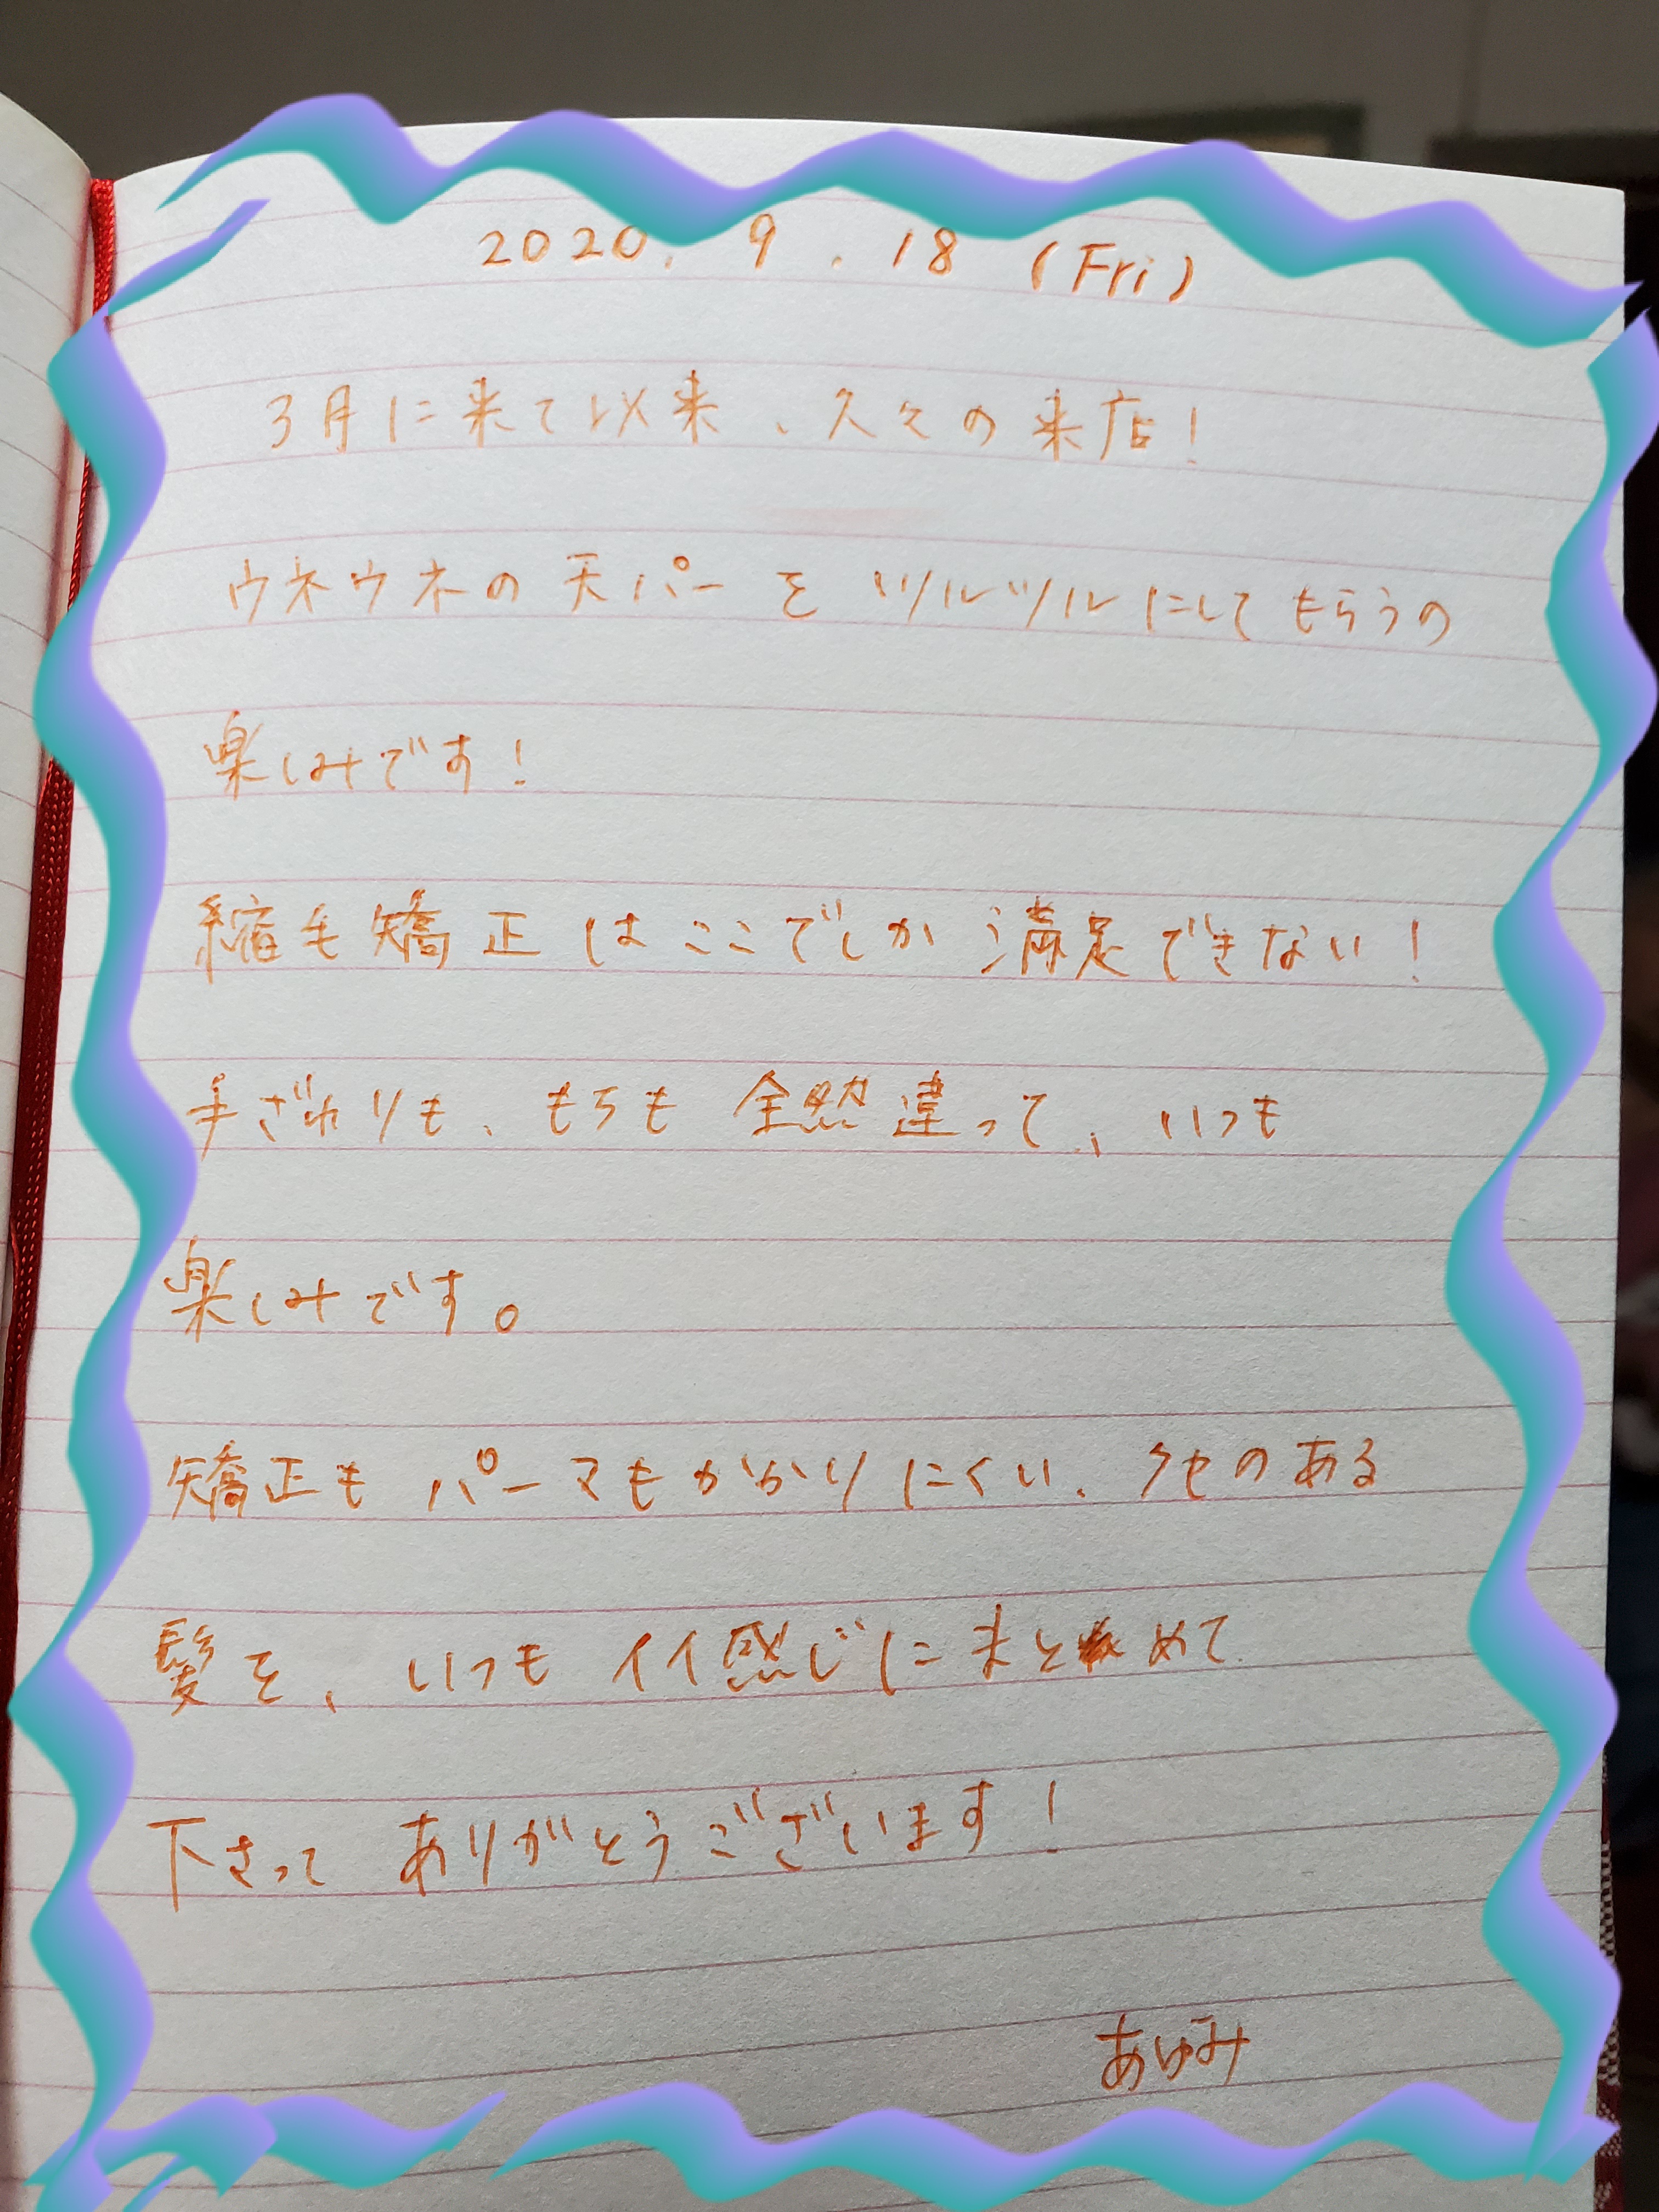 2020. 9. 18 (Fri)
3月に来て以来、久々の来店!
ウネウネの天パーをツルツルにしてもらうの
楽しみです!
縮毛矯正はここでしか満足できない!
手ざわりも、もちも全然違って、いつも
楽しみです。
矯正もパーマもかかりにくい、クセのある
髪を、いつもイイ感じにまとめて
下さってありがとうございます!
あゆみ